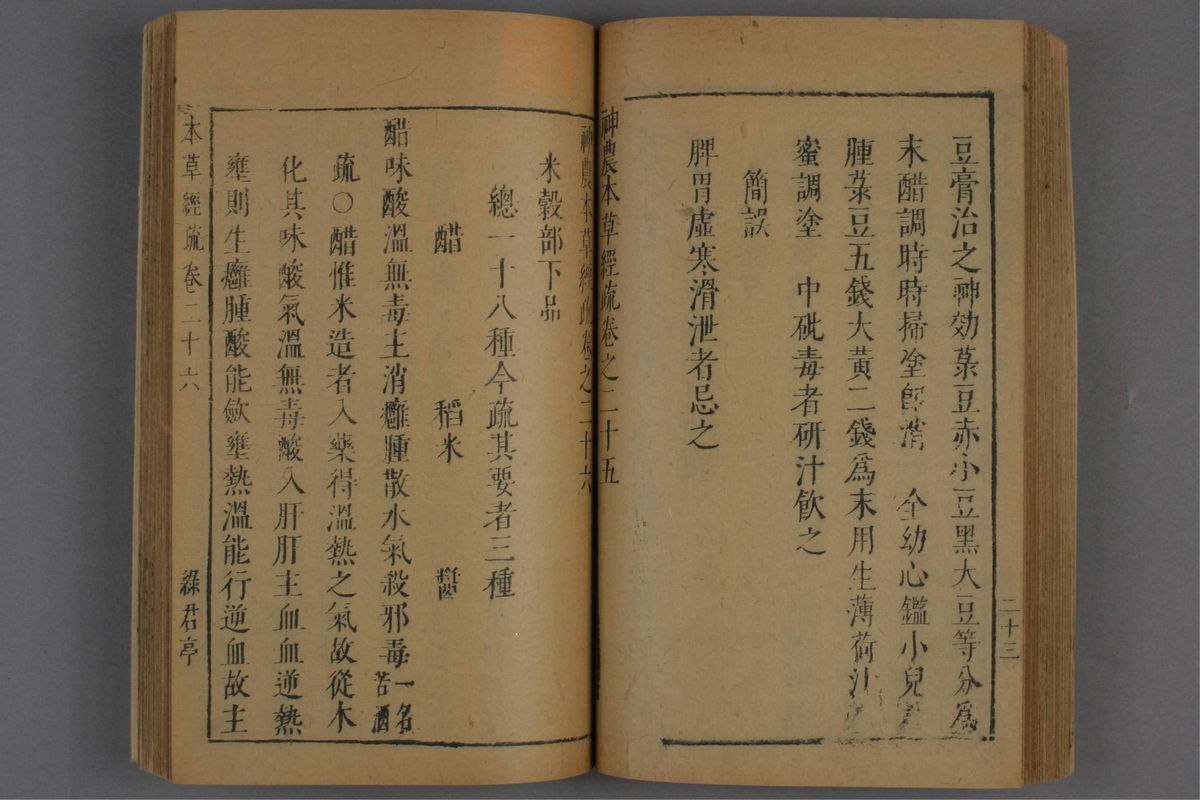 豆膏治之神効菉豆赤小豆黑大豆等分爲
末醋調時時掃塗卽消 全幼心鑑小兒
腫菉豆五錢大黃二錢爲末用生薄荷汁
蜜調塗 中砒毒者研汁飮之
簡誤
脾胃虛寒滑泄者忌之
神農本草經疏卷之二十五
二十三
神農本草經疏卷之二十六
米穀部下品
總一十八種今疏其要者三種
醋 稻米 醬
醋味酸溫無毒主消癰腫散水氣殺邪毒一名苦酒
疏○醋惟米造者入藥得溫熱之氣故從木
化其味酸氣溫無毒酸入肝肝主血血逆熱
壅則生癰腫酸能斂壅熱溫能行逆血故主
本草經疏 卷二十六 綠君亭